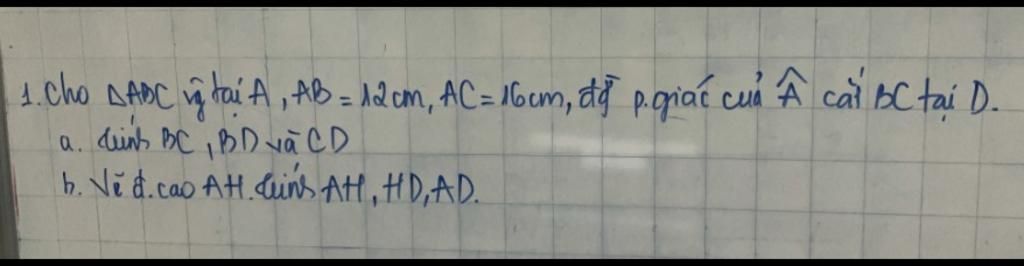 1. Cho ΔABC vg tại A, AB = 12cm, AC = 16cm, đg p.giác của Â cắt BC tại D.
a. tính BC, BD và CD
b. Vẽ đ.cao AH. tính AH, HD, AD.